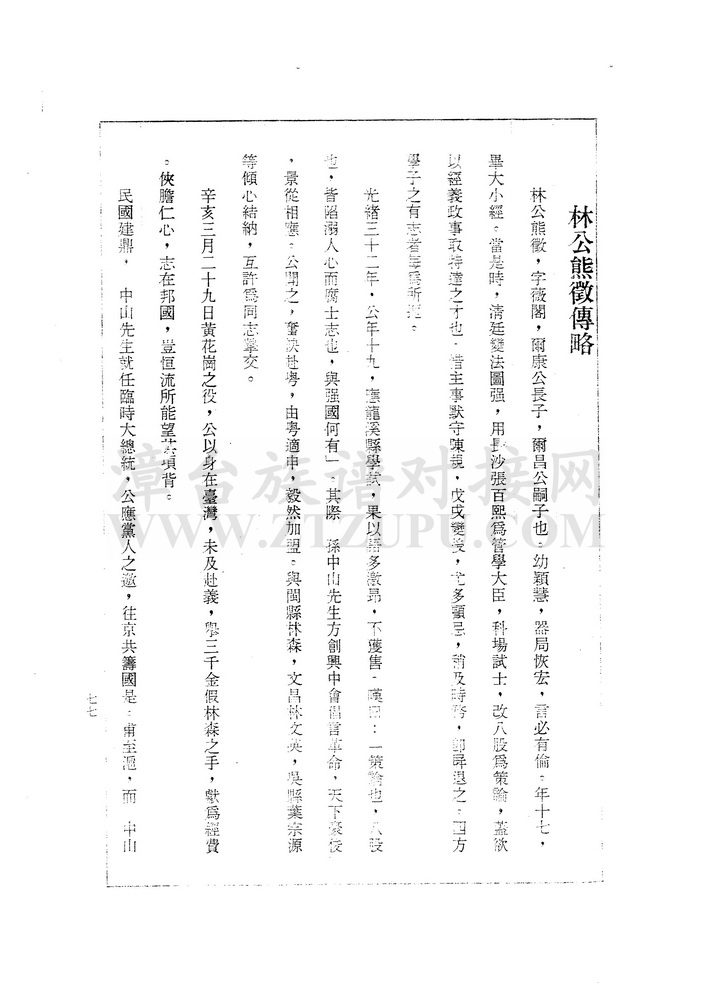 林公熊徵傳略
林公熊徵，字薇閣，爾康公長子，爾昌公嗣子也。幼穎慧，器局恢宏，言必有倫。年十七，
畢大小經。當是時，清廷變法圖强，用長沙張百熙爲管學大臣，科場試士，改八股爲策論，蓋欲
以經義政事取持達之才也。惜主事默守陳規，戊戌變後，尤多顧忌，稍及時務，卽屛退之。四方
學子之有志者每爲所扼。
光緒三十二年，公年十九，應龍溪縣學試，果以語多激昂，不獲售。嘆曰：一策論也，八股
也，皆陷溺人心而腐士志也，與强國何有」。其際　孫中山先生方創興中會倡言革命，天下豪俊
，景從相應。公聞之，奮袂赴粤，由粤適申，毅然加盟。與閩縣林森，文昌林文英，吳縣葉宗源
等傾心結納，互許爲同志摯交。
辛亥三月二十九日黃花崗之役，公以身在臺灣，未及赴義，擧三千金假林森之手，獻爲經費
。俠膽仁心，志在邦國，豈恒流所能望其項背。
民國建鼎，　中山先生就任臨時大總統，公應黨人之邀，往京共籌國是。甫至滬，而　中山
七七
漳台族谱对接网
WWW.ZTZUPU.COM